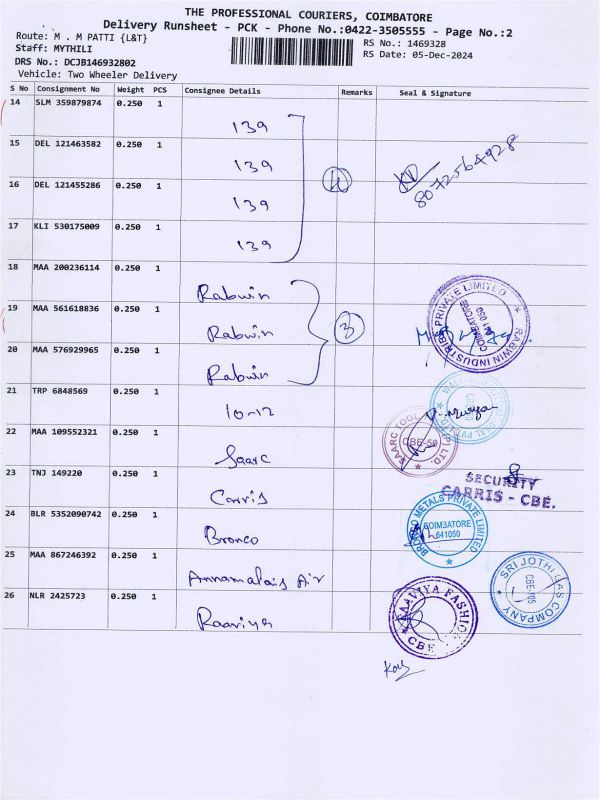 THE PROFESSIONAL COURIERS, COIMBATORE
Delivery Runsheet - PCK - Phone No.:0422-3505555 - Page No.:2
Route: M . M PATTI {L&T}
RS No.: 1469328
Staff: MYTHILI
RS Date: 05-Dec-2024
DRS No.: DCJB146932802
Vehicle: Two Wheeler Delivery
S No Consignment No Weight PCS Consignee Details Remarks Seal & Signature
14 SLM 359879874 0.250 1 139
15 DEL 121463582 0.250 1 139
16 DEL 121455286 0.250 1 139
17 KLI 530175009 0.250 1 139
4
8072564928
18 MAA 200236114 0.250 1 Rabwin
19 MAA 561618836 0.250 1 Rabwin
20 MAA 576929965 0.250 1 Rabwin
3
RABWIN INDUSTRIES PRIVATE LIMITED
COIMBATORE
641 050
21 TRP 6848569 0.250 1 10-12
22 MAA 109552321 0.250 1 Saarc
SAARC TOOL PVT LTD.
CBE-50
23 TNJ 149220 0.250 1 Carris
SECURITY
CARRIS - CBE.
24 BLR 5352090742 0.250 1 Bronco
METALS PRIVATE LIMITED
COIMBATORE
641050
25 MAA 867246392 0.250 1 Annamalais Air
SRI JOTHI GAS COMPANY
CBE-105
26 NLR 2425723 0.250 1 Raaviya
RAAVIYA FASHION
CBE